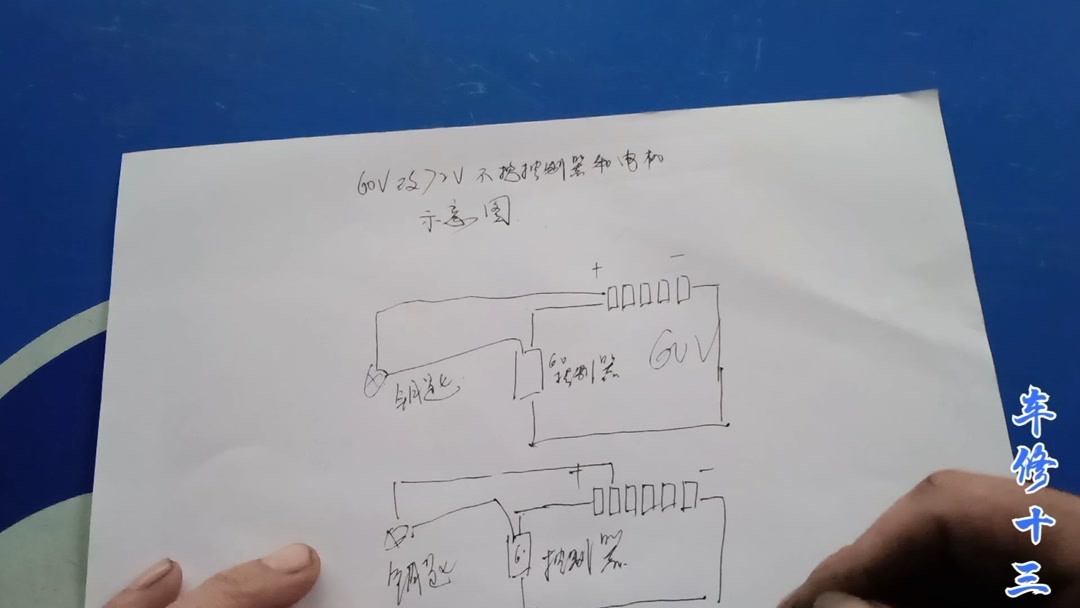 60V改72V不换控制器和电机
示意图
+ −
60
控制器
60V
钥匙
+ −
6
控制器
钥匙
车修十三